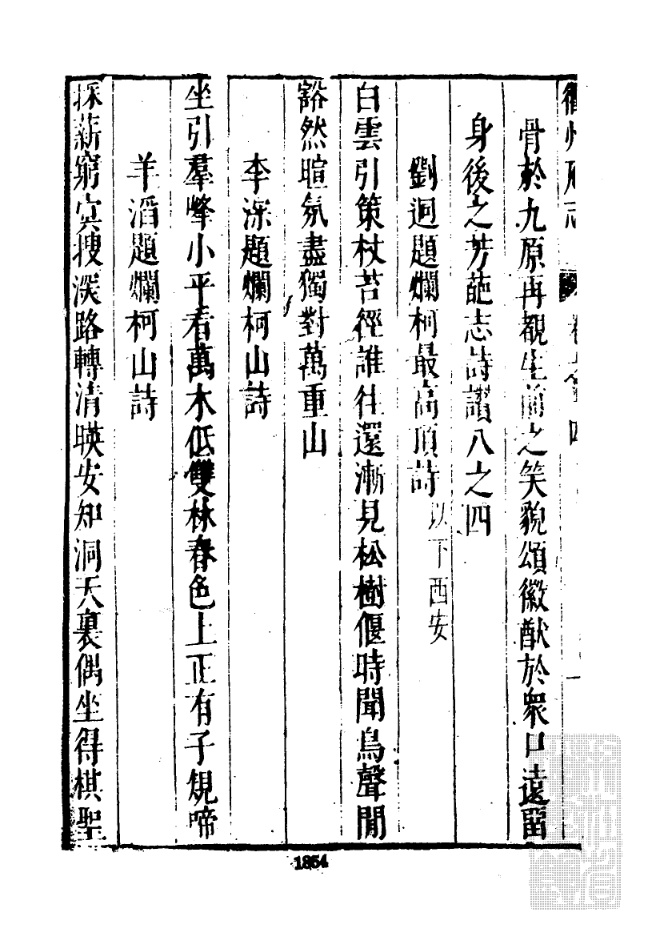 衢州府志 卷之十四
骨於九原再覩生前之笑貌頌徽猷於衆口遠畱
身後之芳葩志詩譜八之四
劉迥題爛柯最高頂詩以下西安
白雲引策杖苔徑誰往還漸見松樹偃時聞鳥聲閒
豁然暄氛盡獨對萬重山
李深題爛柯山詩
坐引羣峰小平看萬木低雙林春色上正有子規啼
羊滔題爛柯山詩
採薪窮冥搜深路轉清映安知洞天裏偶坐得棋聖
1854